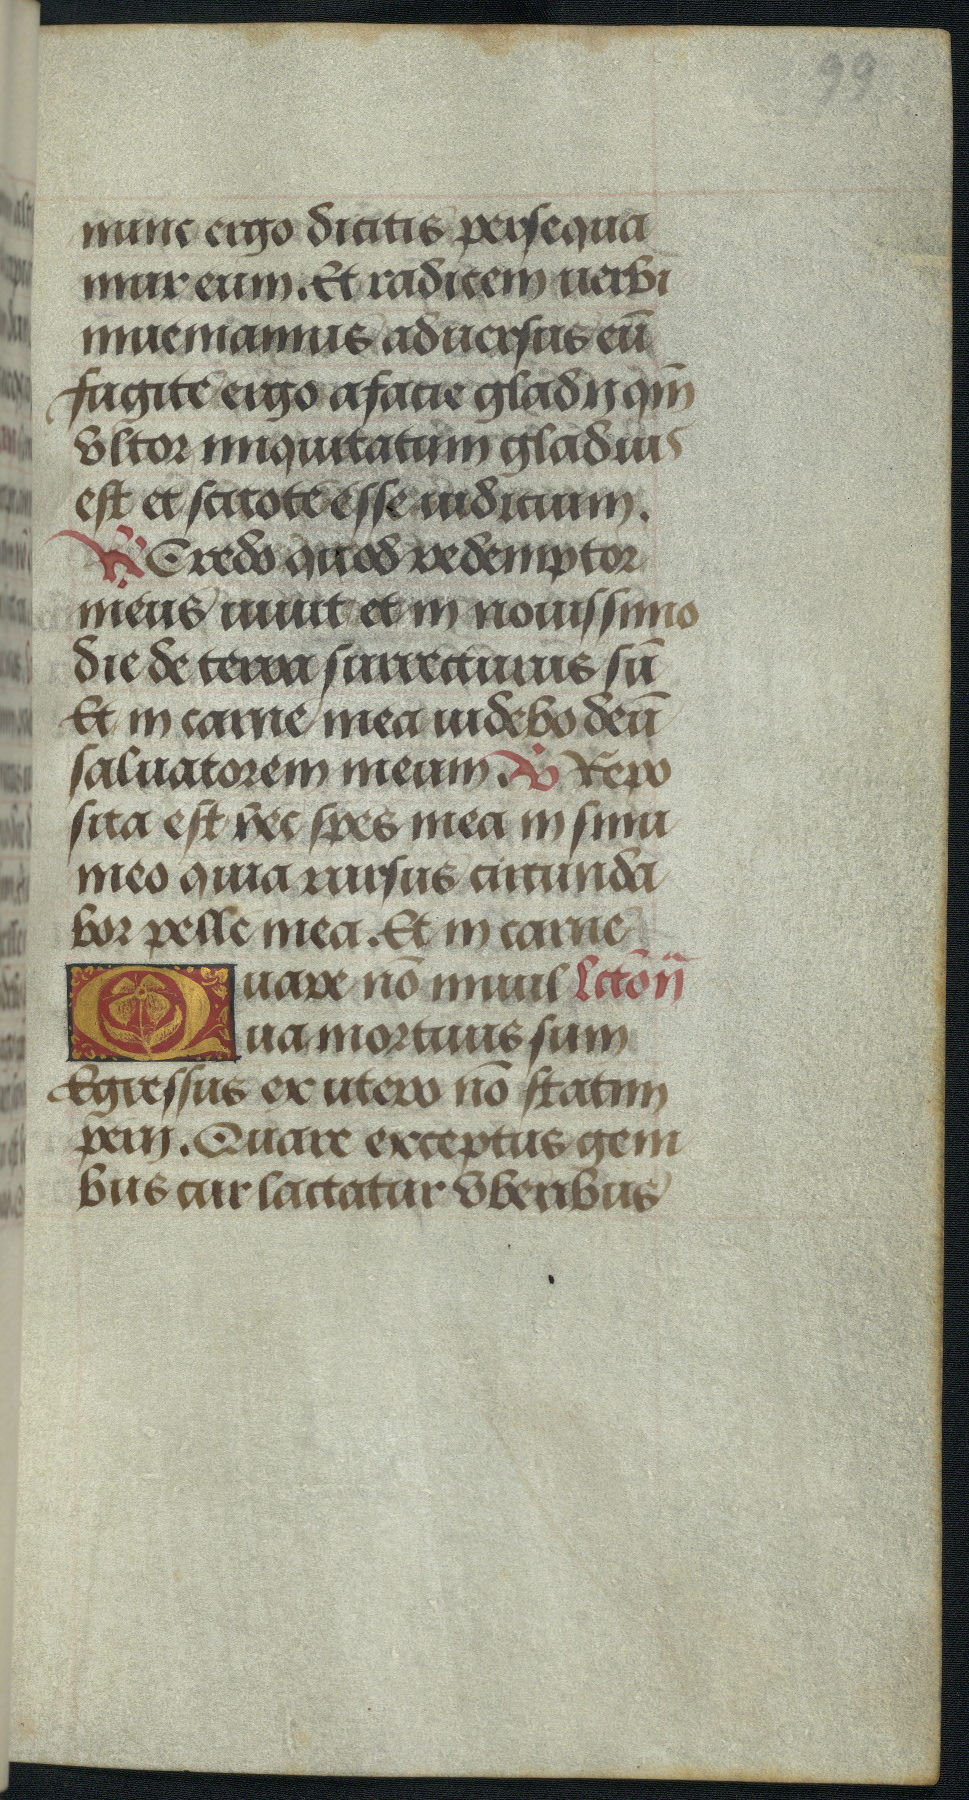 99
nunc ergo dicitis persequa
mur eum. Et radicem uerbi
inueniamus aduersus eū
fugite ergo a facie gladij qm̄
vltor iniquitatum gladius
est et scitote esse iudicium.
R Credo quod redemptor
meus uiuit et in nouissimo
die de terra surrecturus sū
Et in carne mea uidebo deū
saluatorem meum. V Repo
sita est hec spes mea in sinu
meo quia rursus circunda
bor pelle mea. Et in carne
Quare nō inuul Lctō ij
ua mortuus sum
Egressus ex utero nō statim
perij. Quare exceptus geni
bus cur lactatur vberibus